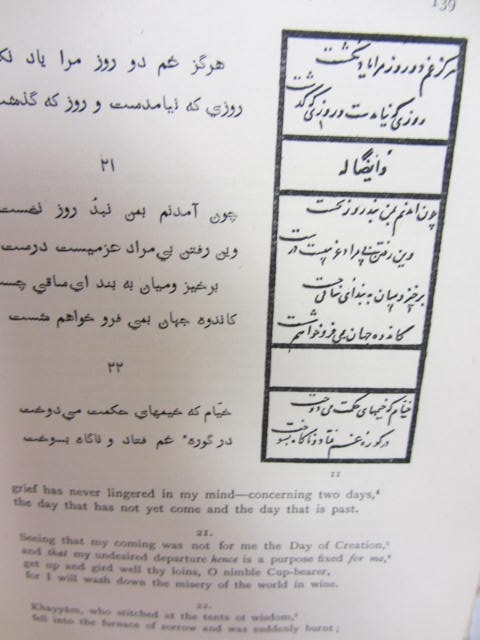 139
هرگز غم دو روز مرا یاد نک
روزی که نیامدست و روز که گذش
۲۱
چون آمدنم بمن نبدٌ روز نخست
وین رفتن بی مراد عزمیست درست
برخیز ومیان به بند ای ساقی چس
کاندوه جهان بمی فرو خواهم شست
۲۲
خیّام که خیمهای حکمت می دوخت
در گورهٔ غم فتاد و ناگاه بسوخت
هرگز غم دو روز مرا یاد نگشت
روزی که نیامدست و روزی که گذشت
وایضاً له
چون آمدنم بمن نبد روز نخست
وین رفتن بیمراد عزمیست درست
برخیز و میان به بند ای ساقی چست
کاندوه جهان بمی فرو خواهم شست
خیام که خیمهای حکمت می دوخت
در کوره غم فتاد و ناکاه بسوخت
11
grief has never lingered in my mind—concerning two days,⁴
the day that has not yet come and the day that is past.
21.
Seeing that my coming was not for me the Day of Creation,
and that my undesired departure hence is a purpose fixed for me,
get up and gird well thy loins, O nimble Cup-bearer,
for I will wash down the misery of the world in wine.
22.
Khayyām, who stitched at the tents of wisdom,
fell into the furnace of sorrow and was suddenly burnt;